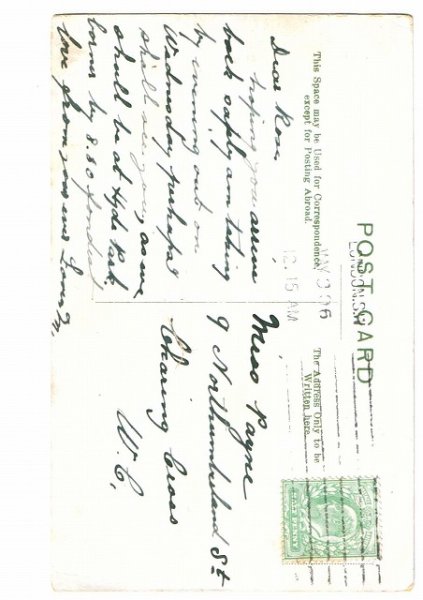 POST CARD
This Space may be Used for Correspondence
except for Posting Abroad.
The Address Only to be
Written here.
LONDON. S.W
MAY 3 06
12.15 AM
HALF PENNY
Dear Rose,
hoping you arrive
back safely am taking
my evening out on
Wednesday perhaps
shall see you, as we
shall be at Hyde Park
corner by 8.30
love from yours
Miss Payne
9 Northumberland St
Charing Cross
W.C.